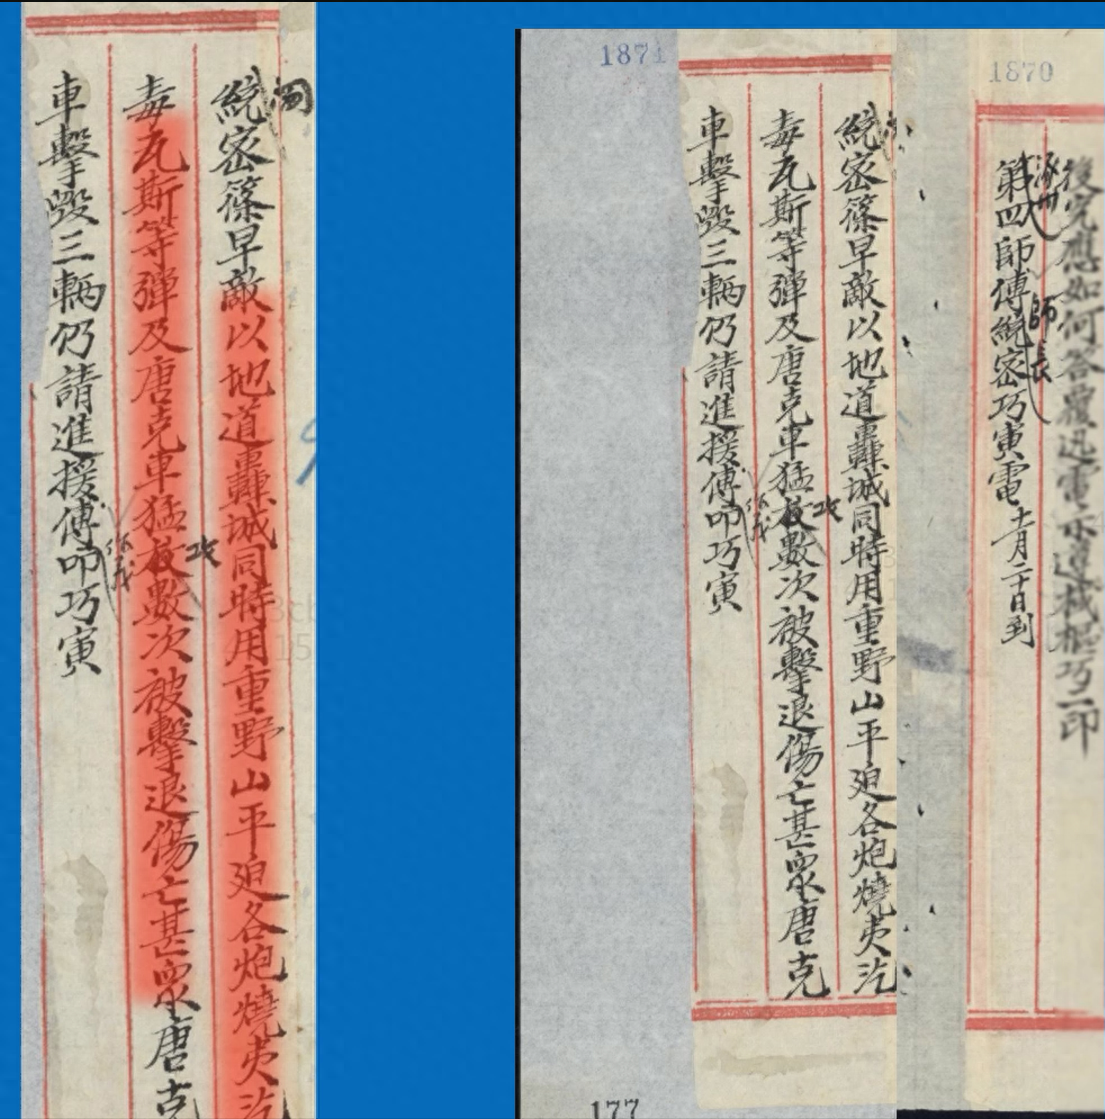 統密篠早敵以地道轟城同時用重野山平迫各炮燒夷汽
毒瓦斯等彈及唐克車猛数次被擊退傷亡甚眾唐克
車擊毀三輛仍請進援傅叩巧寅
1871
1870
後究應如何答覆迅電示遵栈樞巧二印
涿州
師長
第四師傅統密巧寅電 十一月二十日到
統密篠早敵以地道轟城同時用重野山平迫各炮燒夷汽
攻
毒瓦斯等彈及唐克車猛數次被擊退傷亡甚眾唐克
車擊毀三輛仍請進援傅叩巧寅
177